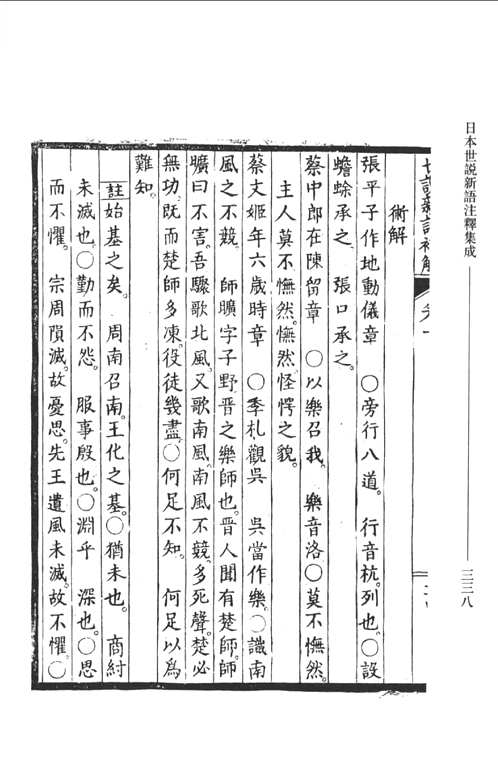 日本世説新語注釋集成
三三八
術解
張平子作地動儀章　○旁行八道。　行音杭。列也。○設
蟾蜍承之。　張口承之。
蔡中郎在陳留章　○以樂召我。　樂音洛○莫不憮然。
主人莫不憮然。憮然怪愕之貌。
蔡文姬年六歳時章　○季札觀吳　吳當作樂。○識南
風之不競　師曠字子野。晋之樂師也。晋人聞有楚師。師
曠曰不害。吾驟歌北風。又歌南風。南風不競。多死聲。楚必
無功。既而楚師多凍。役徒幾盡。○何足不知。　何足以爲
難知。
註始基之矣。　周南召南。王化之基。○猶未也。　商紂
未滅也。○勤而不怨。　服事殷也。○淵乎　深也。○思
而不懼。　宗周隕滅。故憂思。先王遺風未滅。故不懼。○